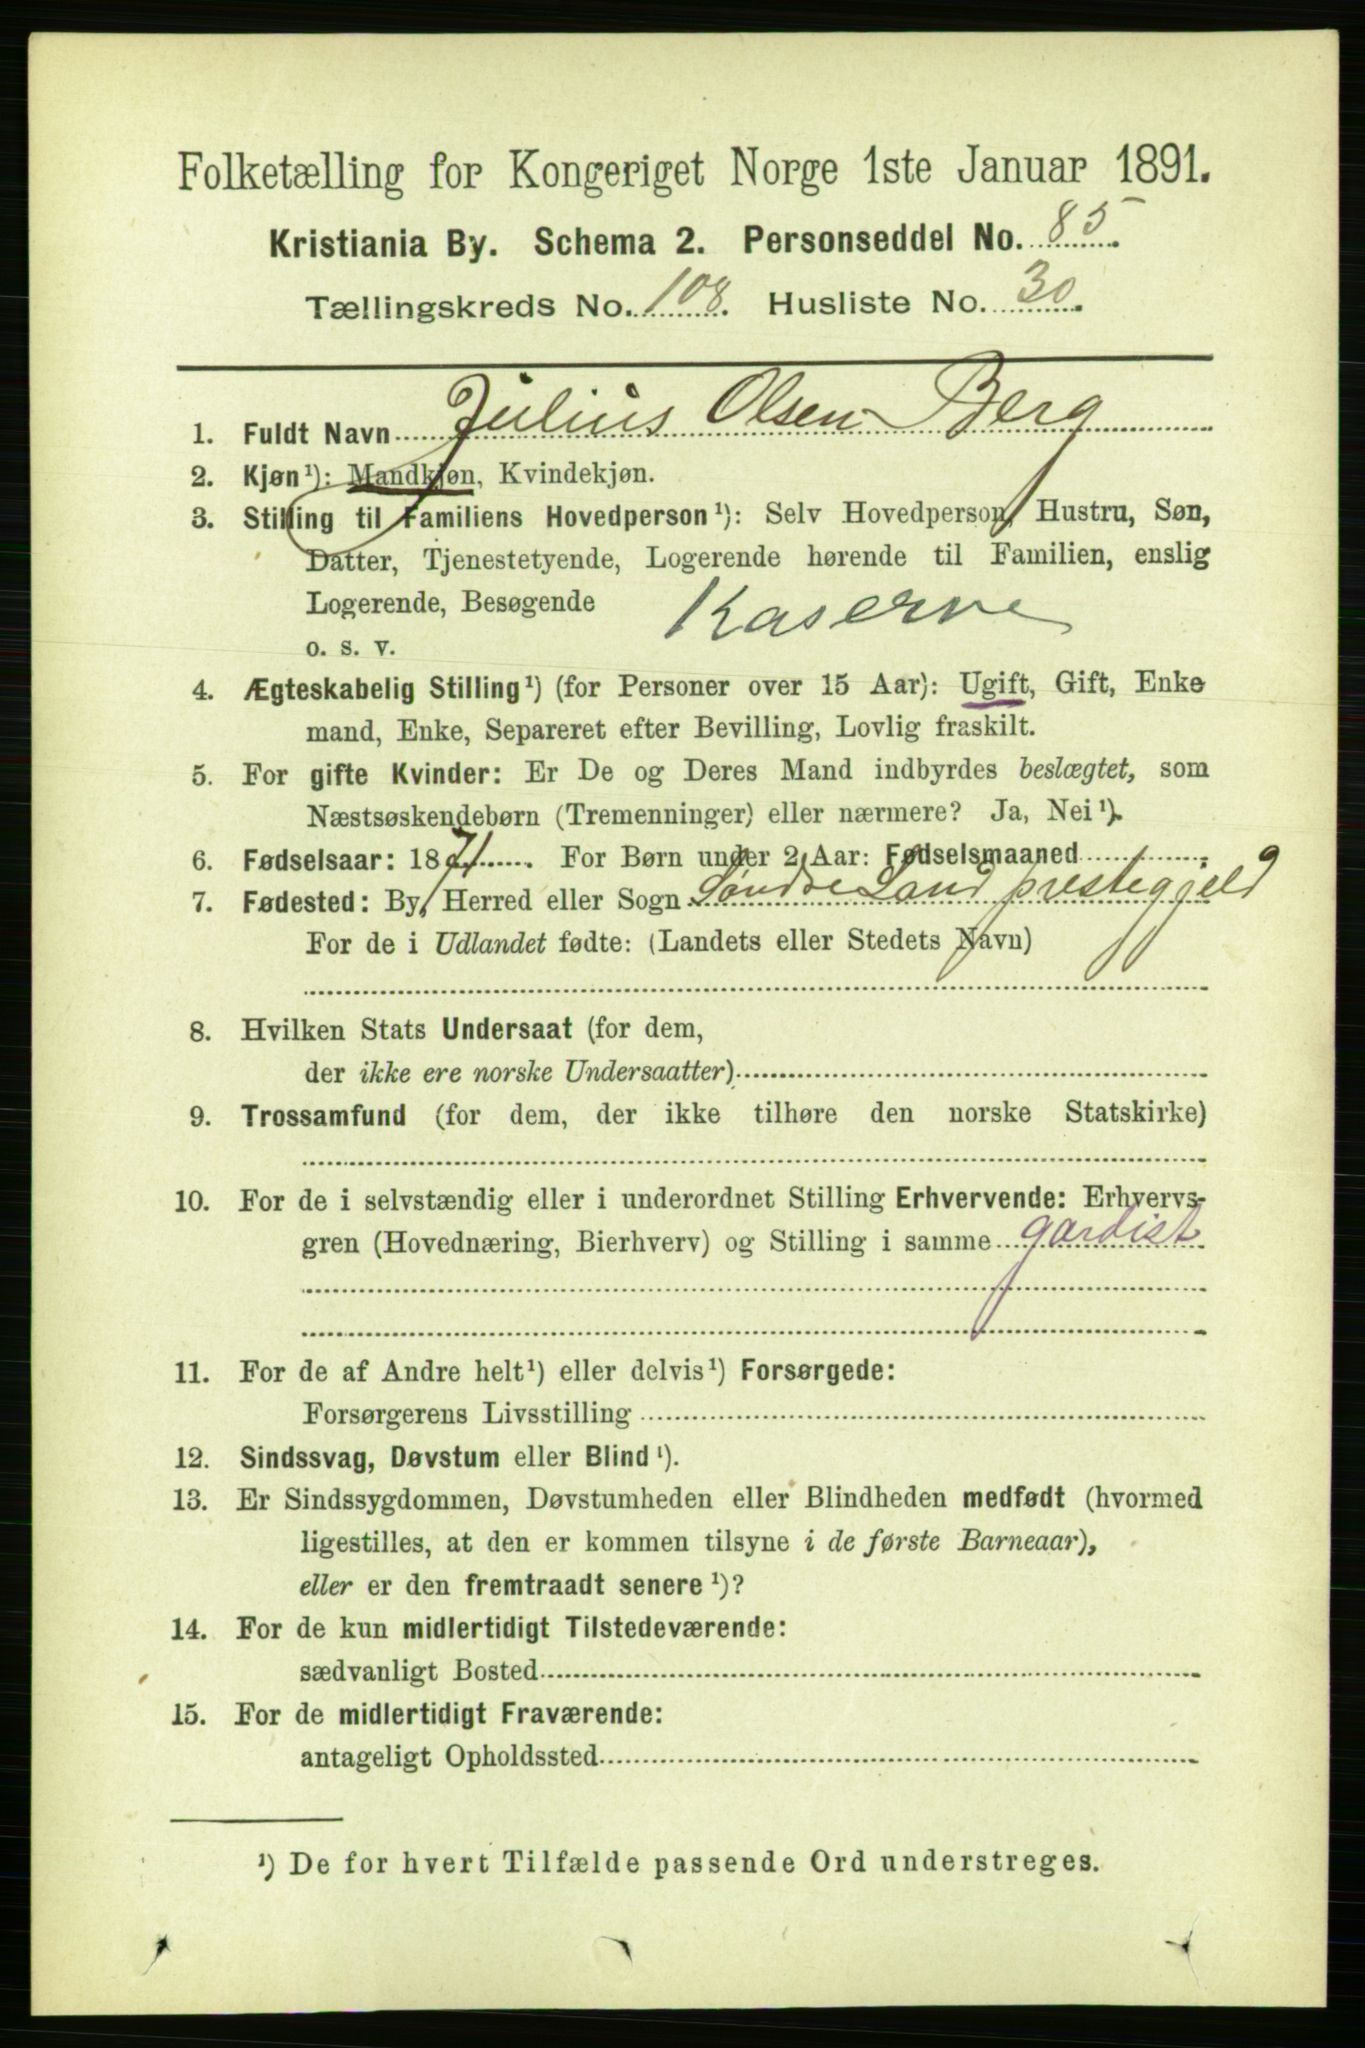 Folketælling for Kongeriget Norge 1ste Januar 1891.
Kristiania By. Schema 2. Personseddel No. 85.
Tællingskreds No. 108. Husliste No. 30.
1. Fuldt Navn Julius Olsen Berg
2. Kjøn¹): Mandkjøn, Kvindekjøn.
3. Stilling til Familiens Hovedperson¹): Selv Hovedperson, Hustru, Søn,
Datter, Tjenestetyende, Logerende hørende til Familien, enslig
Logerende, Besøgende Kaserne
o. s. v.
4. Ægteskabelig Stilling¹) (for Personer over 15 Aar): Ugift, Gift, Enke
mand, Enke, Separeret efter Bevilling, Lovlig fraskilt.
5. For gifte Kvinder: Er De og Deres Mand indbyrdes beslægtet, som
Næstsøskendebørn (Tremenninger) eller nærmere? Ja, Nei¹).
6. Fødselsaar: 1871. For Børn under 2 Aar: Fødselsmaaned .
7. Fødested: By, Herred eller Sogn Søndre Land prestegjeld
For de i Udlandet fødte: (Landets eller Stedets Navn)
8. Hvilken Stats Undersaat (for dem,
der ikke ere norske Undersaatter)
9. Trossamfund (for dem, der ikke tilhøre den norske Statskirke)
10. For de i selvstændig eller i underordnet Stilling Erhvervende: Erhvervs-
gren (Hovednæring, Bierhverv) og Stilling i samme gardist
11. For de af Andre helt¹) eller delvis¹) Forsørgede:
Forsørgerens Livsstilling
12. Sindssvag, Døvstum eller Blind¹).
13. Er Sindssygdommen, Døvstumheden eller Blindheden medfødt (hvormed
ligestilles, at den er kommen tilsyne i de første Barneaar),
eller er den fremtraadt senere¹)?
14. For de kun midlertidigt Tilstedeværende:
sædvanligt Bosted
15. For de midlertidigt Fraværende:
antageligt Opholdssted
¹) De for hvert Tilfælde passende Ord understreges.